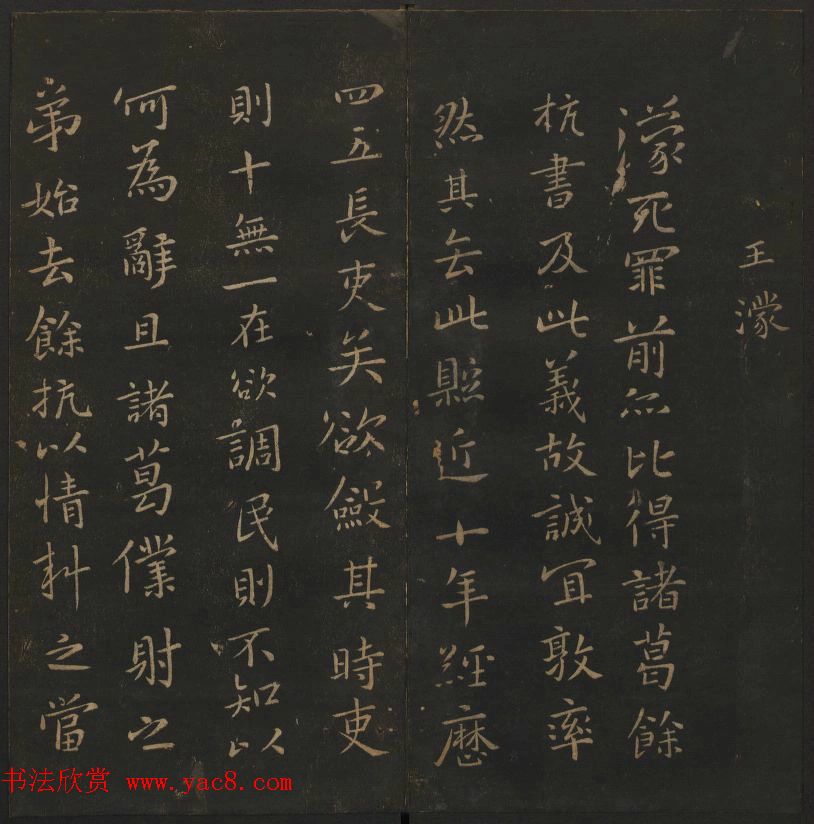 王濛
濛死罪前亦比得諸葛餘
杭書及此義故誠宜敦率
然其去此縣近十年經歷
四五長吏矣欲斂其時吏
則十無一在欲調民則不知以
何為辭且諸葛僕射之
弟始去餘杭以情料之當
书法欣赏 www.yac8.com